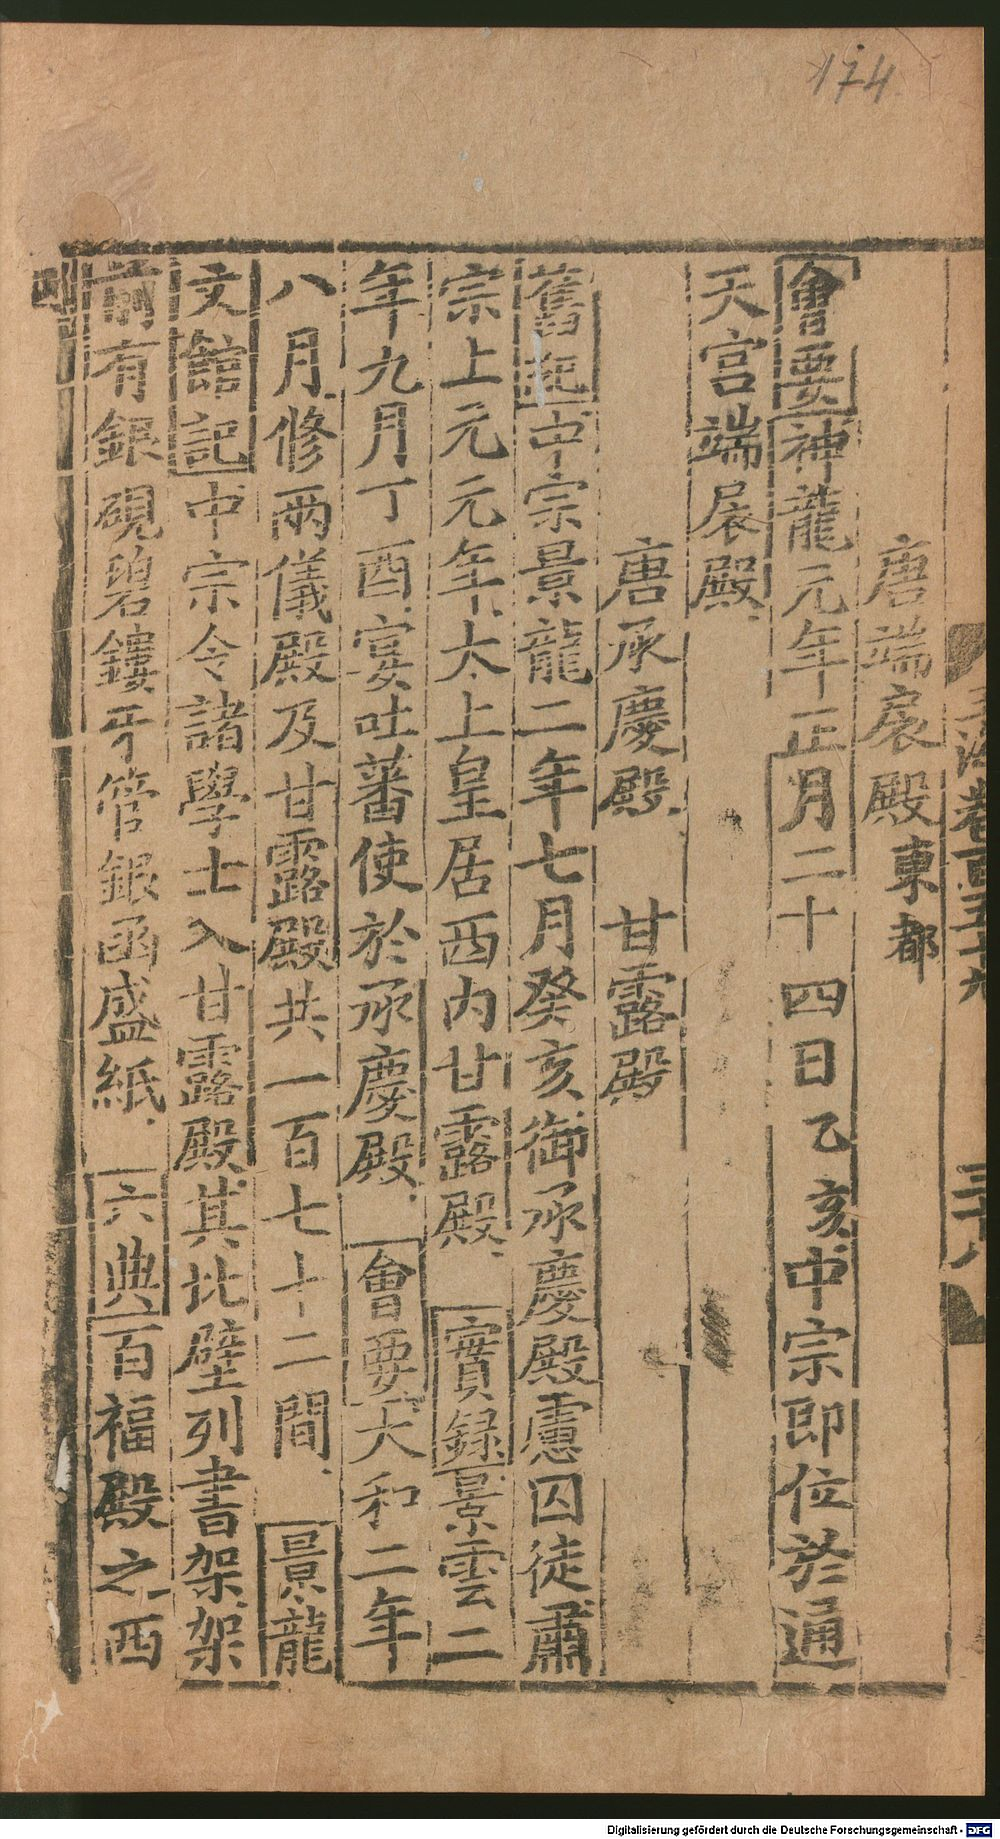 174
玉海卷百五十九 三十八
唐端扆殿東都
會要神龍元年正月二十四日乙亥中宗即位於通
天宮端扆殿
唐承慶殿 甘露殿
舊紀中宗景龍二年七月癸亥御承慶殿慮囚徒肅
宗上元元年太上皇居西內甘露殿 實録景雲二
年九月丁酉宴吐蕃使於承慶殿 會要大和二年
八月修兩儀殿及甘露殿共一百七十二間 景龍
文館記中宗令諸學士入甘露殿其北壁列書架架
前有銀硯碧鏤牙管銀函盛紙 六典百福殿之西
Digitalisierung gefördert durch die Deutsche Forschungsgemeinschaft - DFG